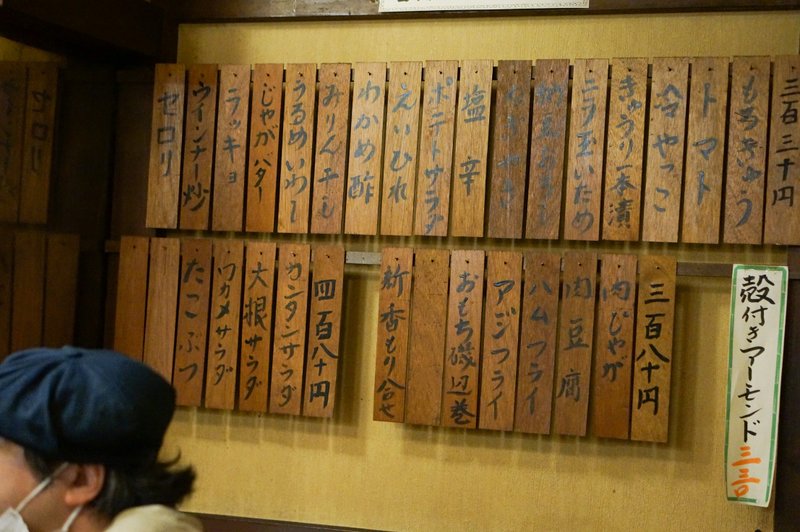 三百三十円
もろきゅう
トマト
冷やっこ
きゅうり一本漬
ニラ玉いため
塩辛
ポテトサラダ
えいひれ
わかめ酢
みりん干し
うるめいわし
じゃがバター
ラッキョ
ウインナー炒
セロリ
三百八十円
肉じゃが
肉豆腐
ハムフライ
アジフライ
おもち磯辺巻
新香もり合せ
四百八十円
カンタンサラダ
大根サラダ
ワカメサラダ
たこぶつ
セロリ
殻付きアーモンド
三三〇